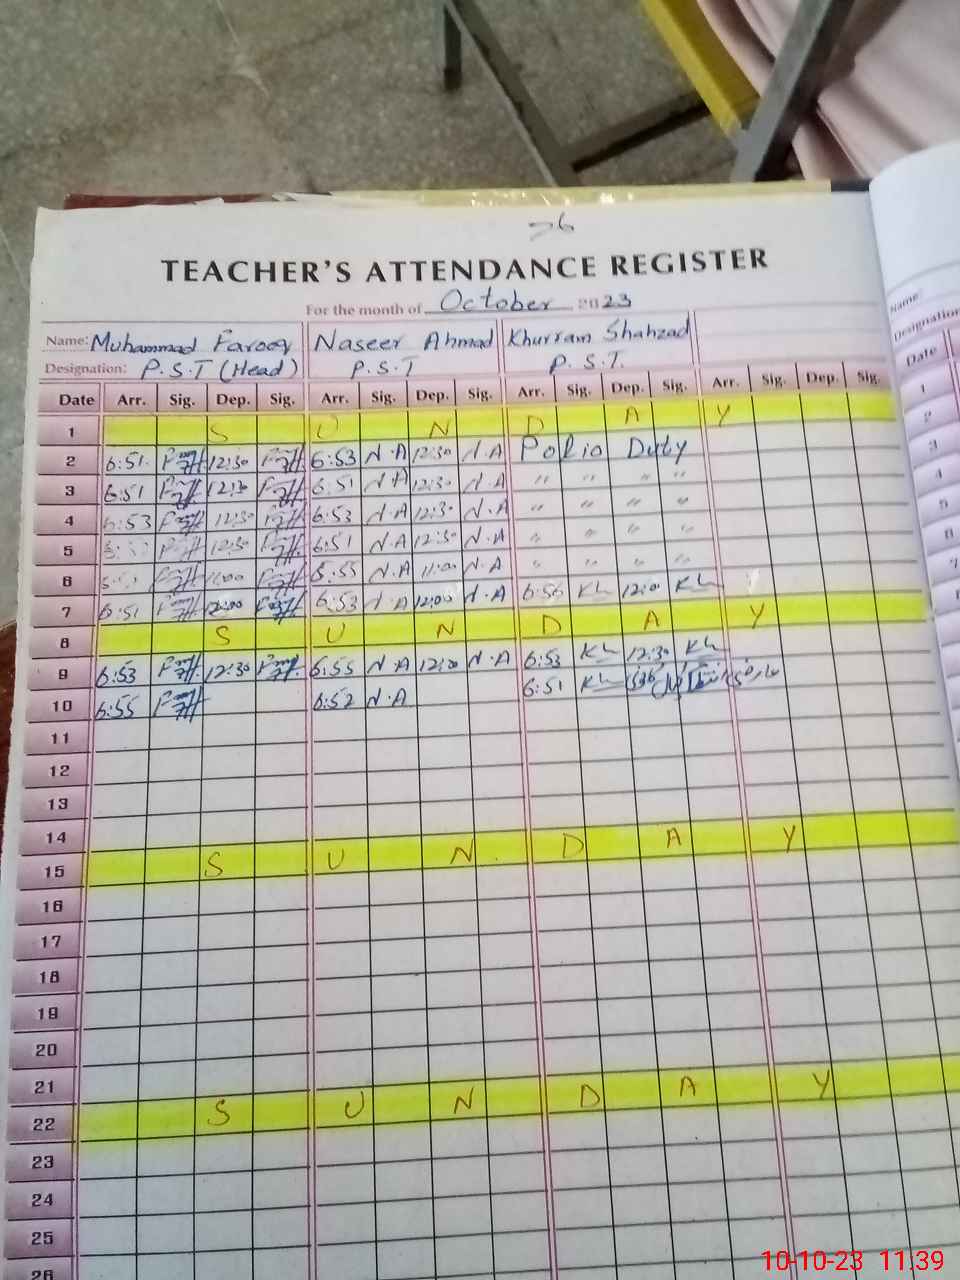 26
TEACHER'S ATTENDANCE REGISTER
For the month of October 2023
Name: Muhammad Farooq Naseer Ahmad Khurram Shahzad
Designation: P.S.T (Head) P.S.T P.S.T.
Date Arr. Sig. Dep. Sig. Arr. Sig. Dep. Sig. Arr. Sig. Dep. Sig. Arr. Sig. Dep. Sig.
1 S U N D A Y
2 6:51 12:30 6:53 N.A 12:30 N.A Polio Duty
3 6:51 6:51 N.A 12:30 N.A " " " "
4 6:53 12:30 6:53 N.A 12:30 N.A " " " "
5 12:30 6:51 N.A 12:30 N.A " " " "
6 11:00 N.A 11:00 N.A " " " "
7 6:51 12:00 6:53 N.A 12:00 N.A 6:56 Kh Kh
8 S U N D A Y
9 6:53 12:30 6:55 N.A N.A 6:53 Kh 12:30 Kh
10 6:55 6:52 N.A 6:51 Kh
11
12
13
14
15 S U N D A Y
16
17
18
19
20
21
22 S U N D A Y
23
24
25
26
Name:
Designation
Date
1
2
3
4
5
6
7
10-10-23 11:39